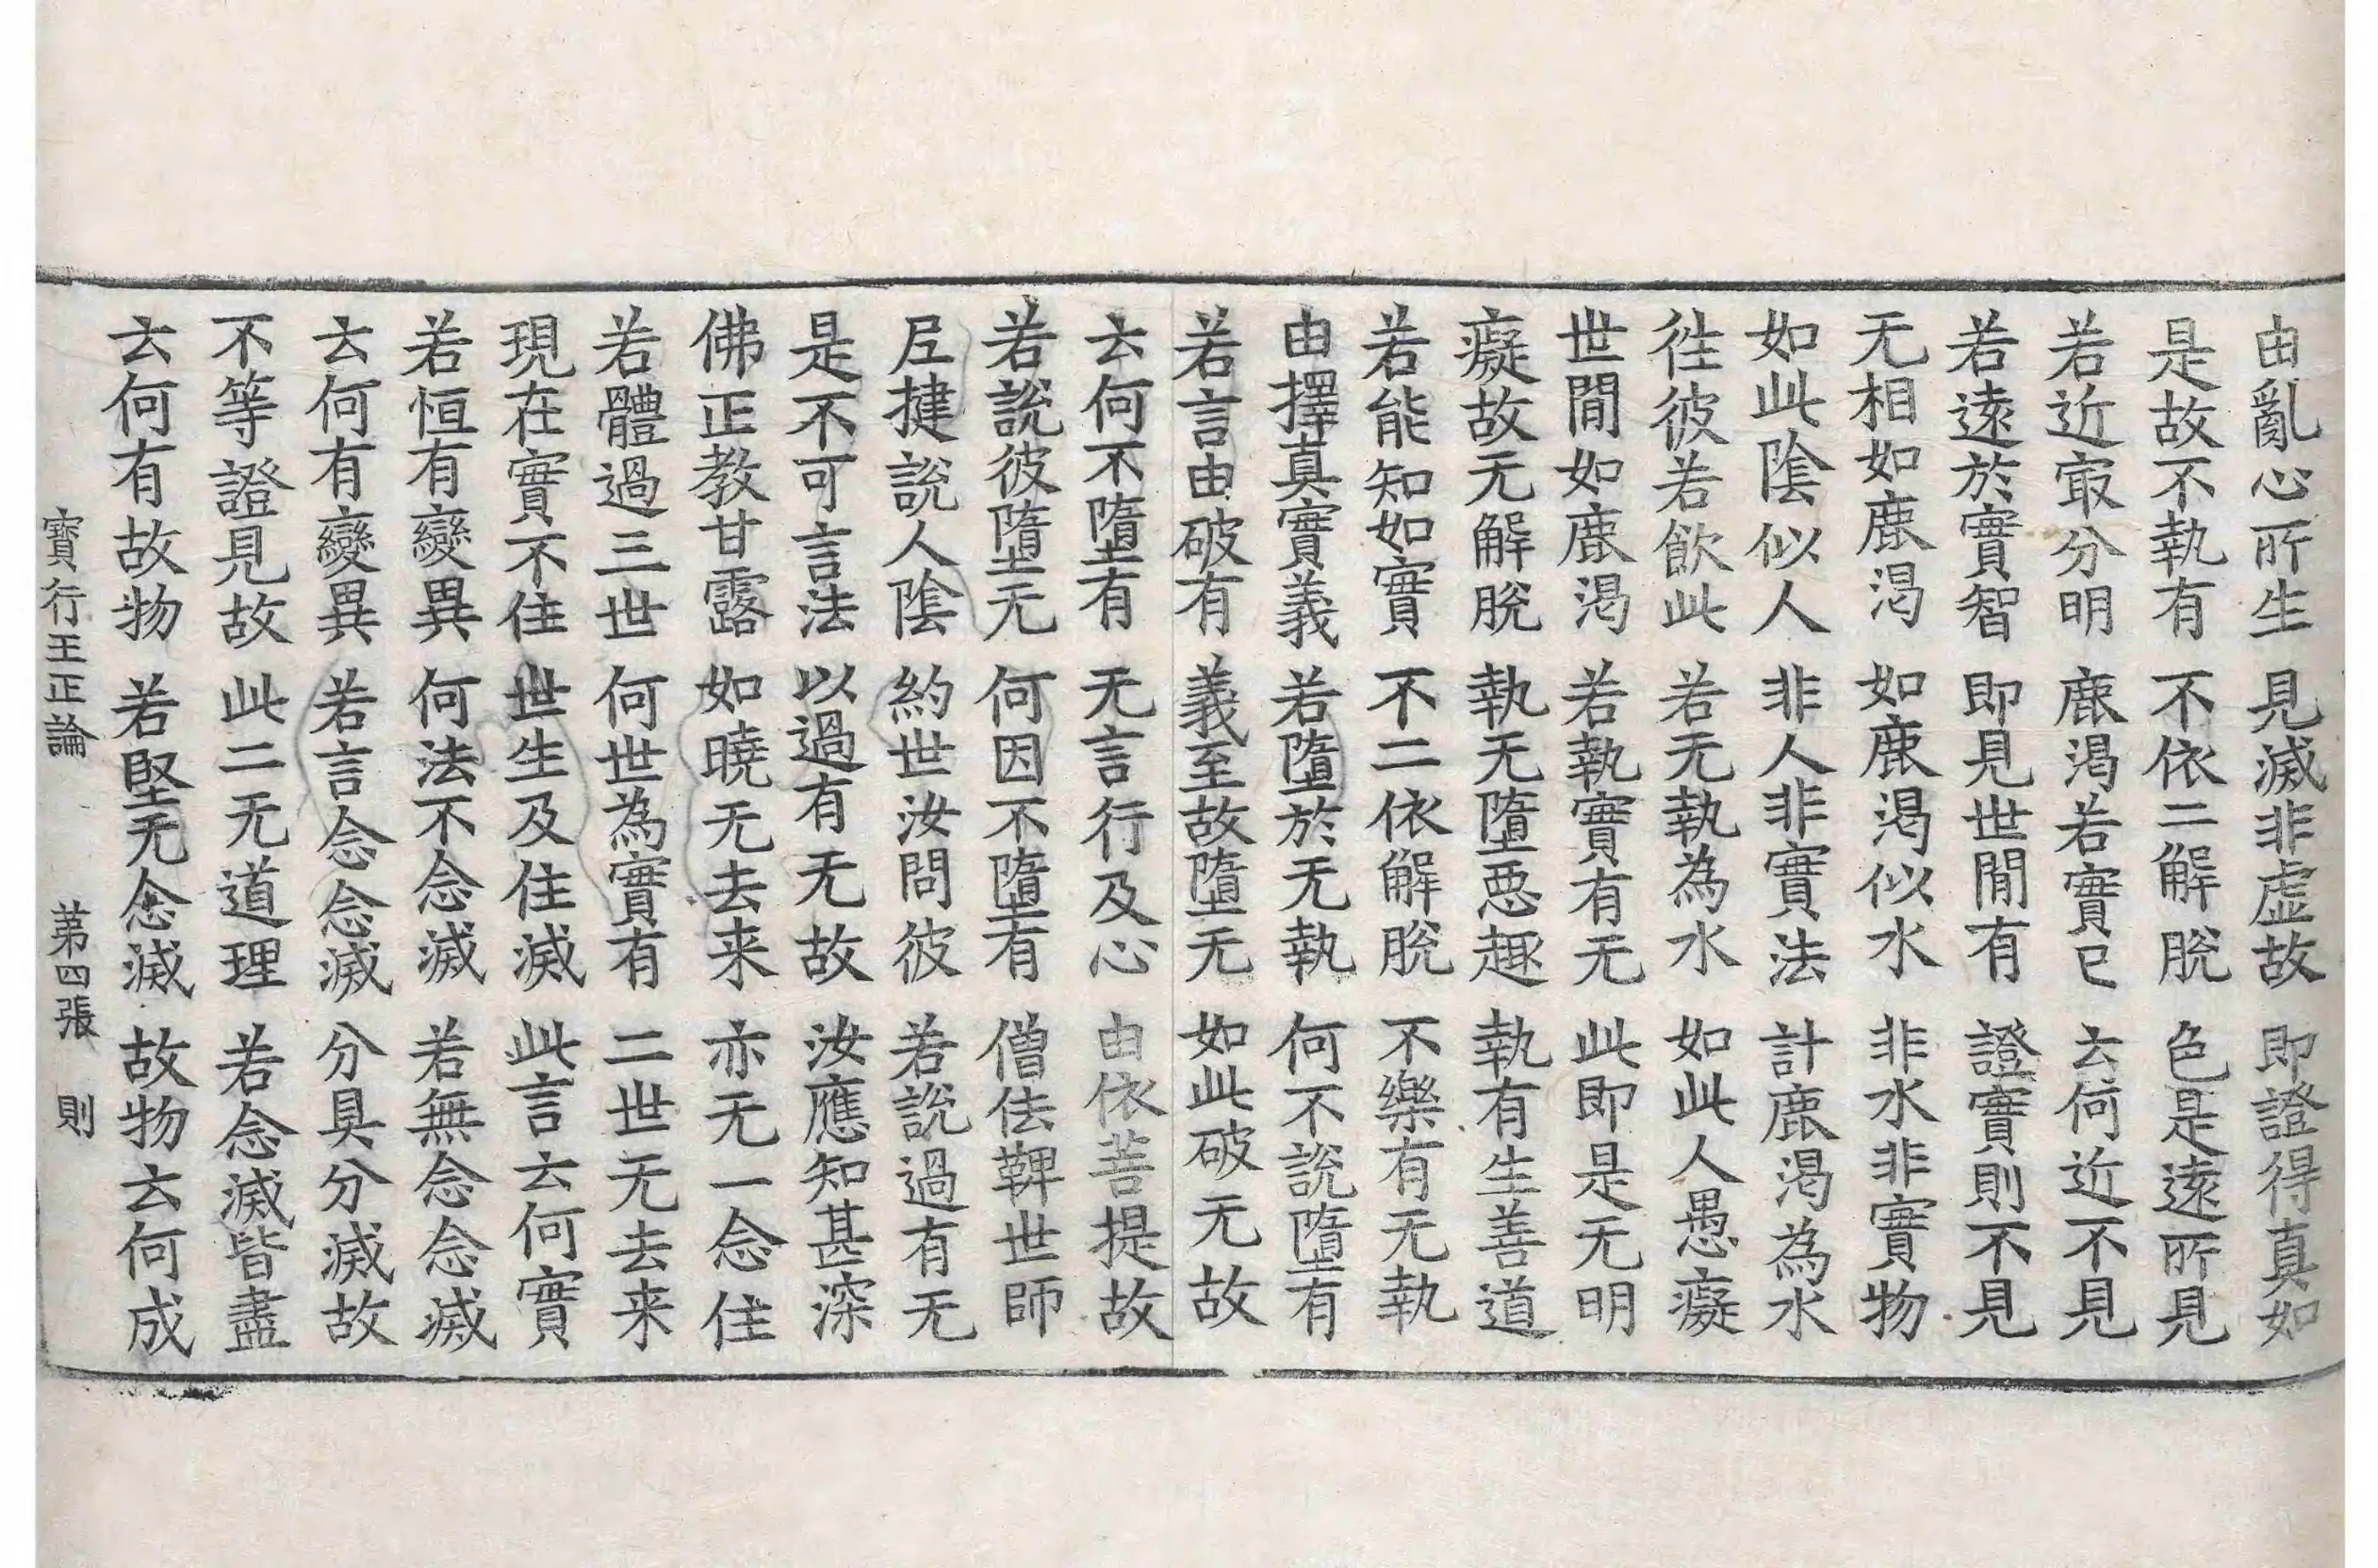 由亂心所生 見滅非虛故 即證得真如
是故不執有 不依二解脫 色是遠所見
若近㝡分明 鹿渴若實已 云何近不見
若遠於實智 即見世間有 證實則不見
无相如鹿渴 如鹿渴似水 非水非實物
如此陰似人 非人非實法 計鹿渴為水
徃彼若飲此 若无執為水 如此人愚癡
世間如鹿渴 若執實有无 此即是无明
癡故无解脫 執无墮惡趣 執有生善道
若能知如實 不二依解脫 不樂有无執
由擇真實義 若墮於无執 何不說墮有
若言由破有 義至故墮无 如此破无故
云何不墮有 无言行及心 由依菩提故
若說彼墮无 何因不墮有 僧佉鞞世師
尼揵說人陰 約世汝問彼 若說過有无
是不可言法 以過有无故 汝應知甚深
佛正教甘露 如曉无去来 亦无一念住
若體過三世 何世為實有 二世无去来
現在實不住 世生及住滅 此言云何實
若恒有變異 何法不念滅 若無念念滅
云何有變異 若言念念滅 分具分滅故
不等證見故 此二无道理 若念滅皆盡
云何有故物 若堅无念滅 故物云何成
寶行王正論 第四張 則